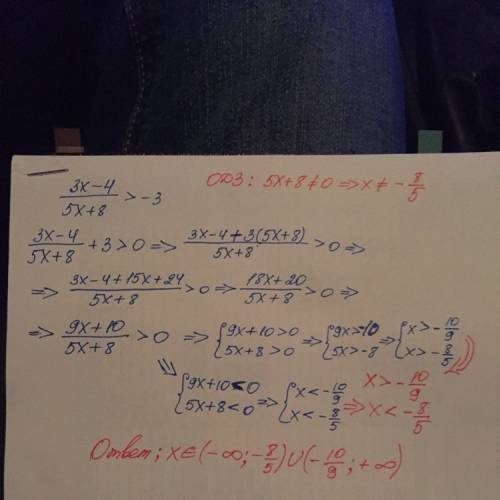 (3x-4)/(5x+8) > -3 ОДЗ: 5x+8≠0 => x≠ -8/5
(3x-4)/(5x+8) + 3 > 0 => (3x-4+3(5x+8))/(5x+8) > 0 =>
=> (3x-4+15x+24)/(5x+8) > 0 => (18x+20)/(5x+8) > 0 =>
=> (9x+10)/(5x+8) > 0 => { 9x+10>0 5x+8>0 => { 9x>-10 5x>-8 => { x>-10/9 x>-8/5
=> { 9x+10<0 5x+8<0 => { x<-10/9 x<-8/5 => x>-10/9 x<-8/5
Ответ; x∈(-∞;-8/5)∪(-10/9;+∞)